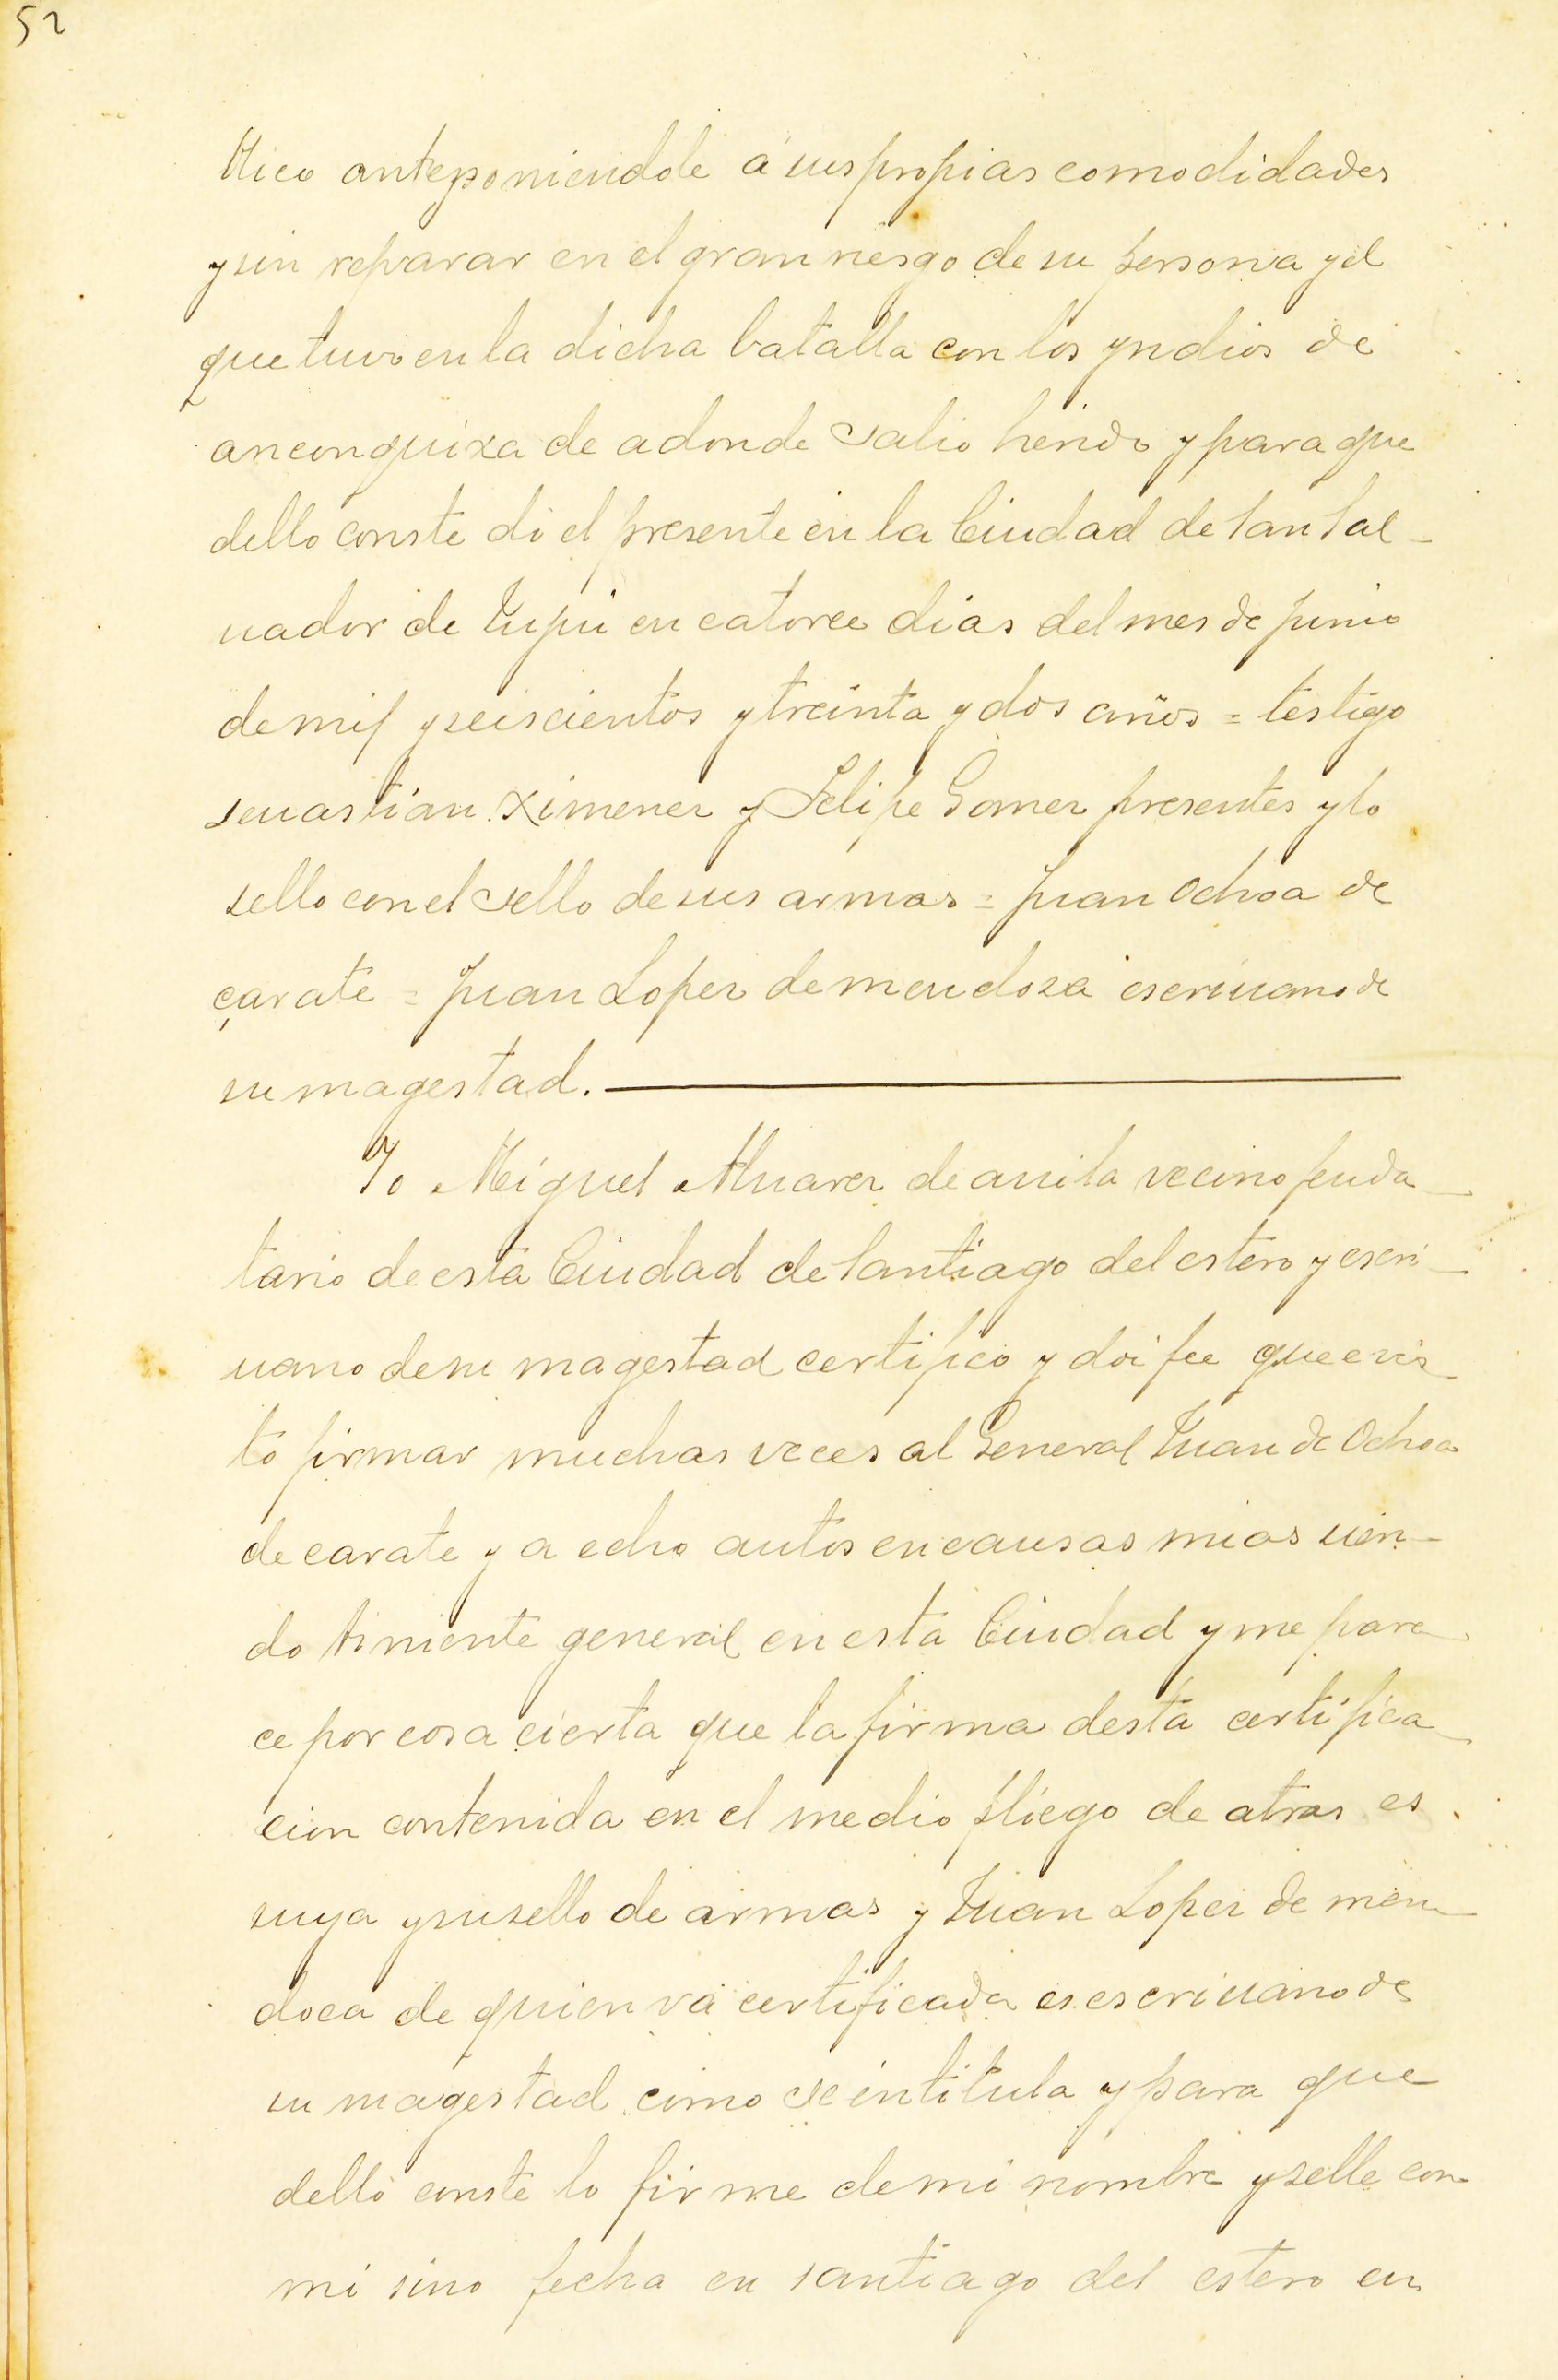 52
blico anteponiendole a sus propias comodidades
y sin reparar en el gran riesgo de su persona y el
que tuvo en la dicha batalla con los yndios de
anconquixa de adonde salio herido y para que
dello conste di el presente en la Ciudad de San Sal-
uador de Xupui en catorce dias del mes de junio
de mil y seiscientos y treinta y dos años = testigo
seuastian Ximenez y Felipe Gomez presentes y lo
sello con el sello de sus armas = Juan Ochoa de
çarate = Juan Lopez de mendoza escriuano de
su magestad.
Yo Miguel Aluarez de auila vecino feuda
tario de esta Ciudad de Santiago del estero y escri-
uano de su magestad certifico y doi fee que e vis
to firmar muchas veces al General Xuan de Ochoa
de carate y a echo autos en causas mias sien-
do tiniente general en esta Ciudad y me pare
ce por cosa cierta que la firma desta certifica
cion contenida en el medio pliego de atras es
suya y su sello de armas y Xuan Lopez de men
doca de quien va certificada es escriuano de
su magestad como se intitula y para que
dello conste lo firme de mi nombre y selle con
mi sino fecha en santiago del estero en